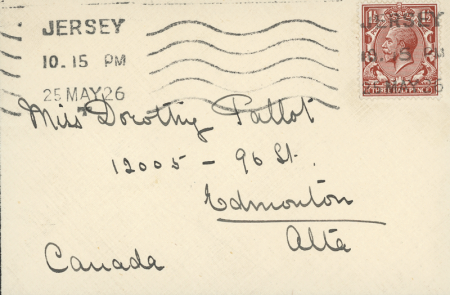 JERSEY
10.15 PM
25 MAY 26
JERSEY
Miss Dorothy Pallot
12005 - 96 St.
Edmonton
Alta
Canada